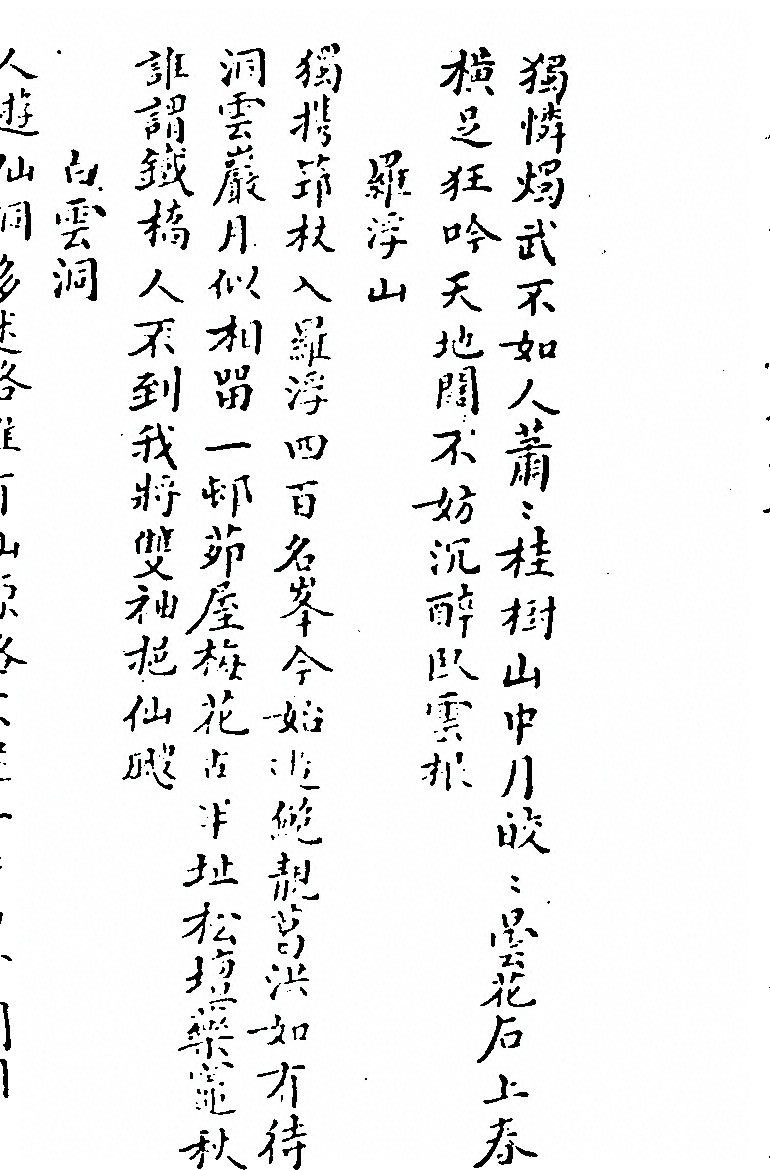 獨憐燭武不如人蕭〻桂樹山中月皎〻曇花石上春
橫足狂吟天地闊不妨沉醉臥雲根
羅浮山
獨携筇杖入羅浮四百名峯今始遊鮑靚葛洪如有待
洞雲巖月似相留一邨茆屋梅花古半址松壇藥竈秋
誰謂鐵橋人不到我將雙袖挹仙
白雲洞
人遊仙洞多迷路